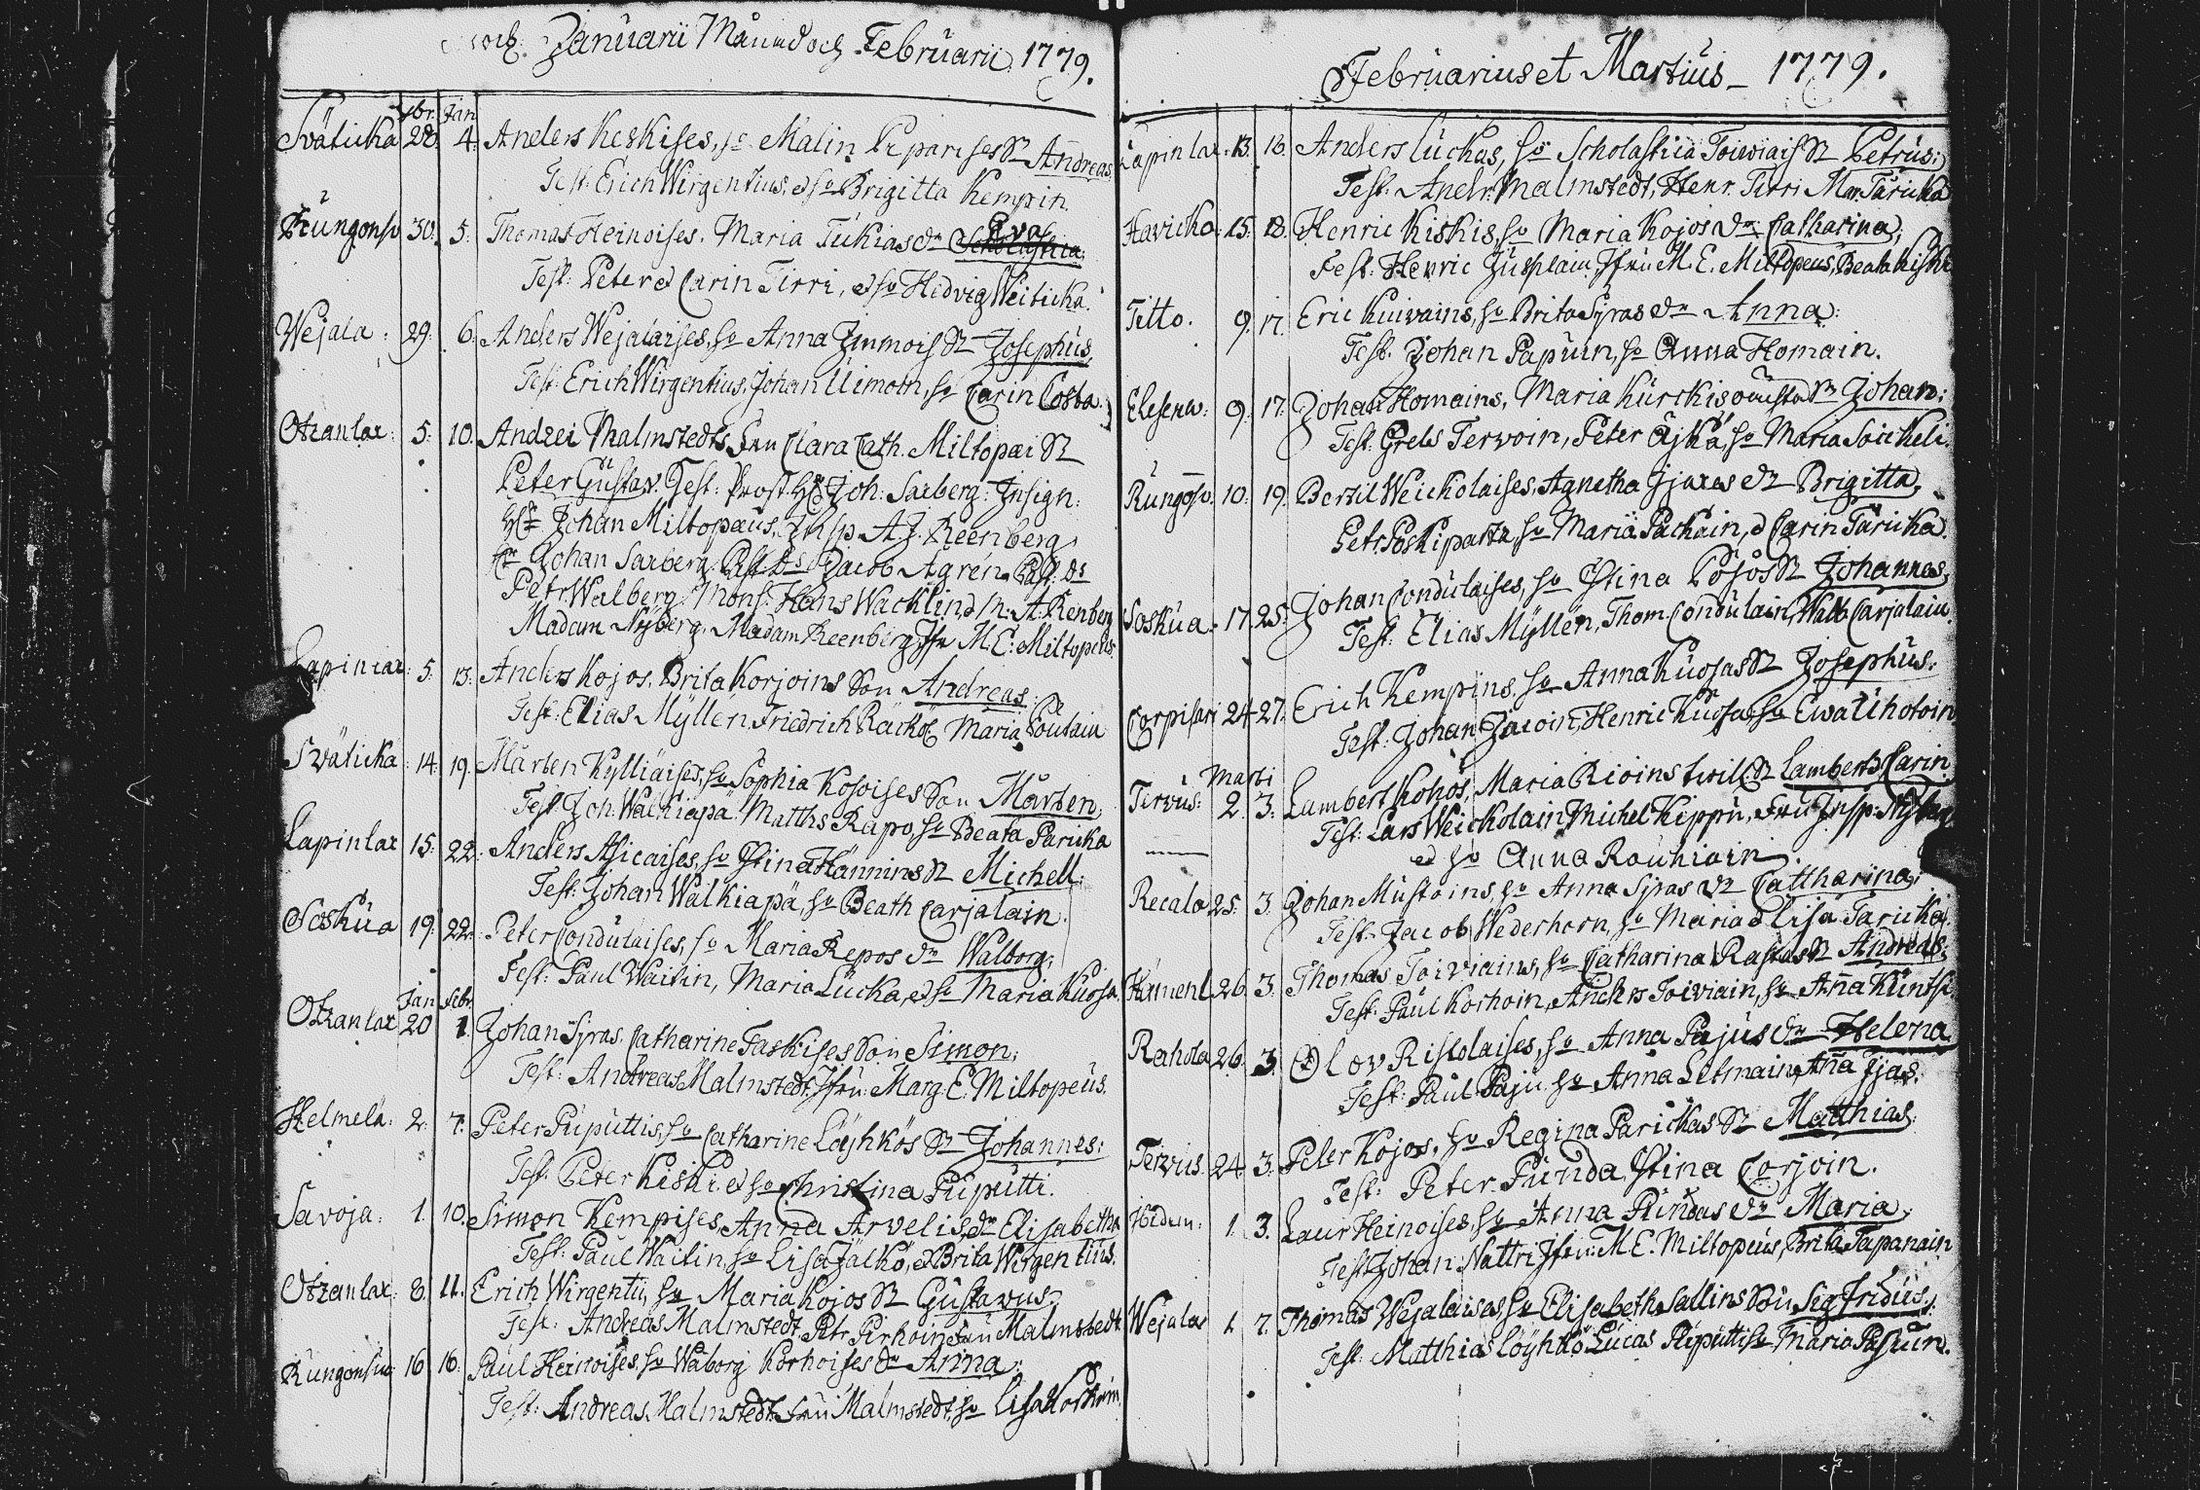 och Januarii Månad och Februarii 1779.
Xbr. Jan
Sväticka 28. 4. Anders Keskises, so Malin Liparises Sn Andreas,
Test: Erich Wirgentius, et so Brigitta Kempin.
Rungonso 30. 5. Thomas Heinoises. Maria Tukias dr Scholastica Eva
Test: Peter et Carin Tirri, et so Hedvig Weiticka.
Wejala: 29. 6. Anders Wejalaises, so Anna Immois Sn Josephus,
Test: Erich Wirgentius, Johan Uimoin, so Carin Costa.
Otzanlax: 5. 10. Andreæ Malmstedts Fru Clara Cath. Miltopæi Sn
Peter Gustav. Test: Prost. Hr Joh: Sarberg: Insign:
Hr Johan Miltopæus, Insp. A. J. Reenberg,
Hr Johan Sarberg. Past: Ds Jacob Agrén, Past: Ds
Petr. Walberg. Mons: Hans Wacklin, M. A. Renberg
Madam Nyberg. Madam Reenberg, Jfru M. E: Miltopeus.
Lapinlax: 5. 13. Anders Kojos, Brita Korjoins Son Andreas.
Test: Elias Myllen, Friedrich Räckö, Maria Poutain
Sväticka 14. 19. Mårten Kylliäises, so Sophia Kosoises Son Mårten,
Test. Joh. Walkiapä. Matths Rapo, so Beata Paricka
Lapinlax 15. 22. Anders Asicaises, so Stina Hännins Sn Michell.
Test: Johan Walkiapä, so Beath Carjalain.
Soskua 19. 22. Peter Condulaises, so Maria Repos dr Walborg,
Test: Paul Waitin, Maria Lucka, et so Maria Kuosa.
Jan Febr.
Otzanlax 20 1. Johan Syras. Catharine Taskises Son Simon,
Test: Andreas Malmstedt, Jfru. Marg. E. Miltopeus.
Helmelä: 2. 7. Peter Piiputtis, so Catharine Löyhkös Sn Johannes:
Test: Peter Kiski, et so Christina Piiputti.
Savoja: 1. 10. Simon Kempises, Anna Arvelis, dr Elisabetha
Test: Paul Waitin, so Lisa Jälkö, et Brita Wirgentius.
Otzanlax. 8. 11. Erich Wirgentii, so Maria Kojos Sn Gustavus.
Test: Andreas Malmstedt, Petr Pirhoin, Fru Malmstedt
Rungonsuo 16 16. Paul Heinoises, so Waborg Korhoises dr Anna,
Test: Andreas Malmstedt, Fru Malmstedt, so Lisa Korhoin.
Februarius et Martius 1779.
Lapinlax. 13. 16. Anders Luckas, so Scholastica Toiwiais Sn Petrus,
Test: Andr. Malmstedt, Henr. Tirri Mar. Taricka
Havicko: 15. 18. Henric Kiskis, so Maria Kojos dr Catharina,
Test: Henric Juselain, Jfru M. E. Miltopeus, Beata Kiski
Titto. 9. 17. Eric Kuivains, so Brita Syras dr Anna:
Test. Johan Papuin, so Anna Homain.
9. 17. Johan Homains, Maria Kurckis Sn Johan;
Test. Grels Tervoin, Peter Äjkä, so Maria Soickeli.
Rungoso. 10. 19. Bertil Weickolaises, Agnetha Ijäxes dr Brigitta,
Petr. Poskiparta, so Maria Packain, et Carin Taricka.
Soskua. 17. 25. Johan Condulaises, so Stina Pojos Sn Johannes,
Test: Elias Myllen, Thom. Condulain, Walb. Carjalain.
Corpisari 24 27. Erich Kempins, so Anna Kuosas Sn Josephus.
Test: Johan Jacoin, Henric Kuosa, so Ewa Uhotoin
Marti
Tervus: 2. 3. Lambert Kohos, Maria Rioins twil: Sn Lambert et Carin
Test: Lars Weickolain, Michel Keppu, Fru Insp. Nyberg
et so Anna Rouhiain.
Recala 25. 3. Johan Mustoins, so Anna Syras dr Cattharina,
Test: Jacob Wederhorn, so Maria et Lisa Taricka.
Kumenl. 26. 3. Thomas Toiviains, so Catharina Rastas Sn Andreas:
Test: Paul Korhoin, Anders Toiviain, so Anna Kuntsi.
Rahola 26. 3. Olov Ristolaises, so Anna Pajus dr Helena
Test: Paul Paju, so Anna Letmain, Anna Ijas.
Tervus. 24. 3. Peter Kojos, so Regina Parickas Sn Matthias,
Test: Peter Punda, Stina Corjoin.
1. 3. Laur Heinoises, so Anna Pundas dr Maria,
Test Johan Nattri, Jfru: M E. Miltopeus, Brita Tapanain
Wejala 1. 7. Thomas Wejalaises, so Elisabeth Sallins Son Sigfridus,
Test: Matthias Löyhkö, Lucas Piiputti, so Maria Papuin.